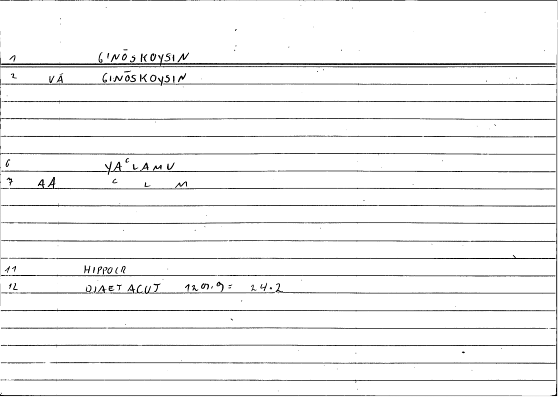 1 GINŌSKOYSIN
2 VÁ GINŌSKOYSIN
6 YAᶜLAMU
7 AA ᶜ L M
11 HIPPOCR
12 DIAET ACUT 1209.9 = 24.2